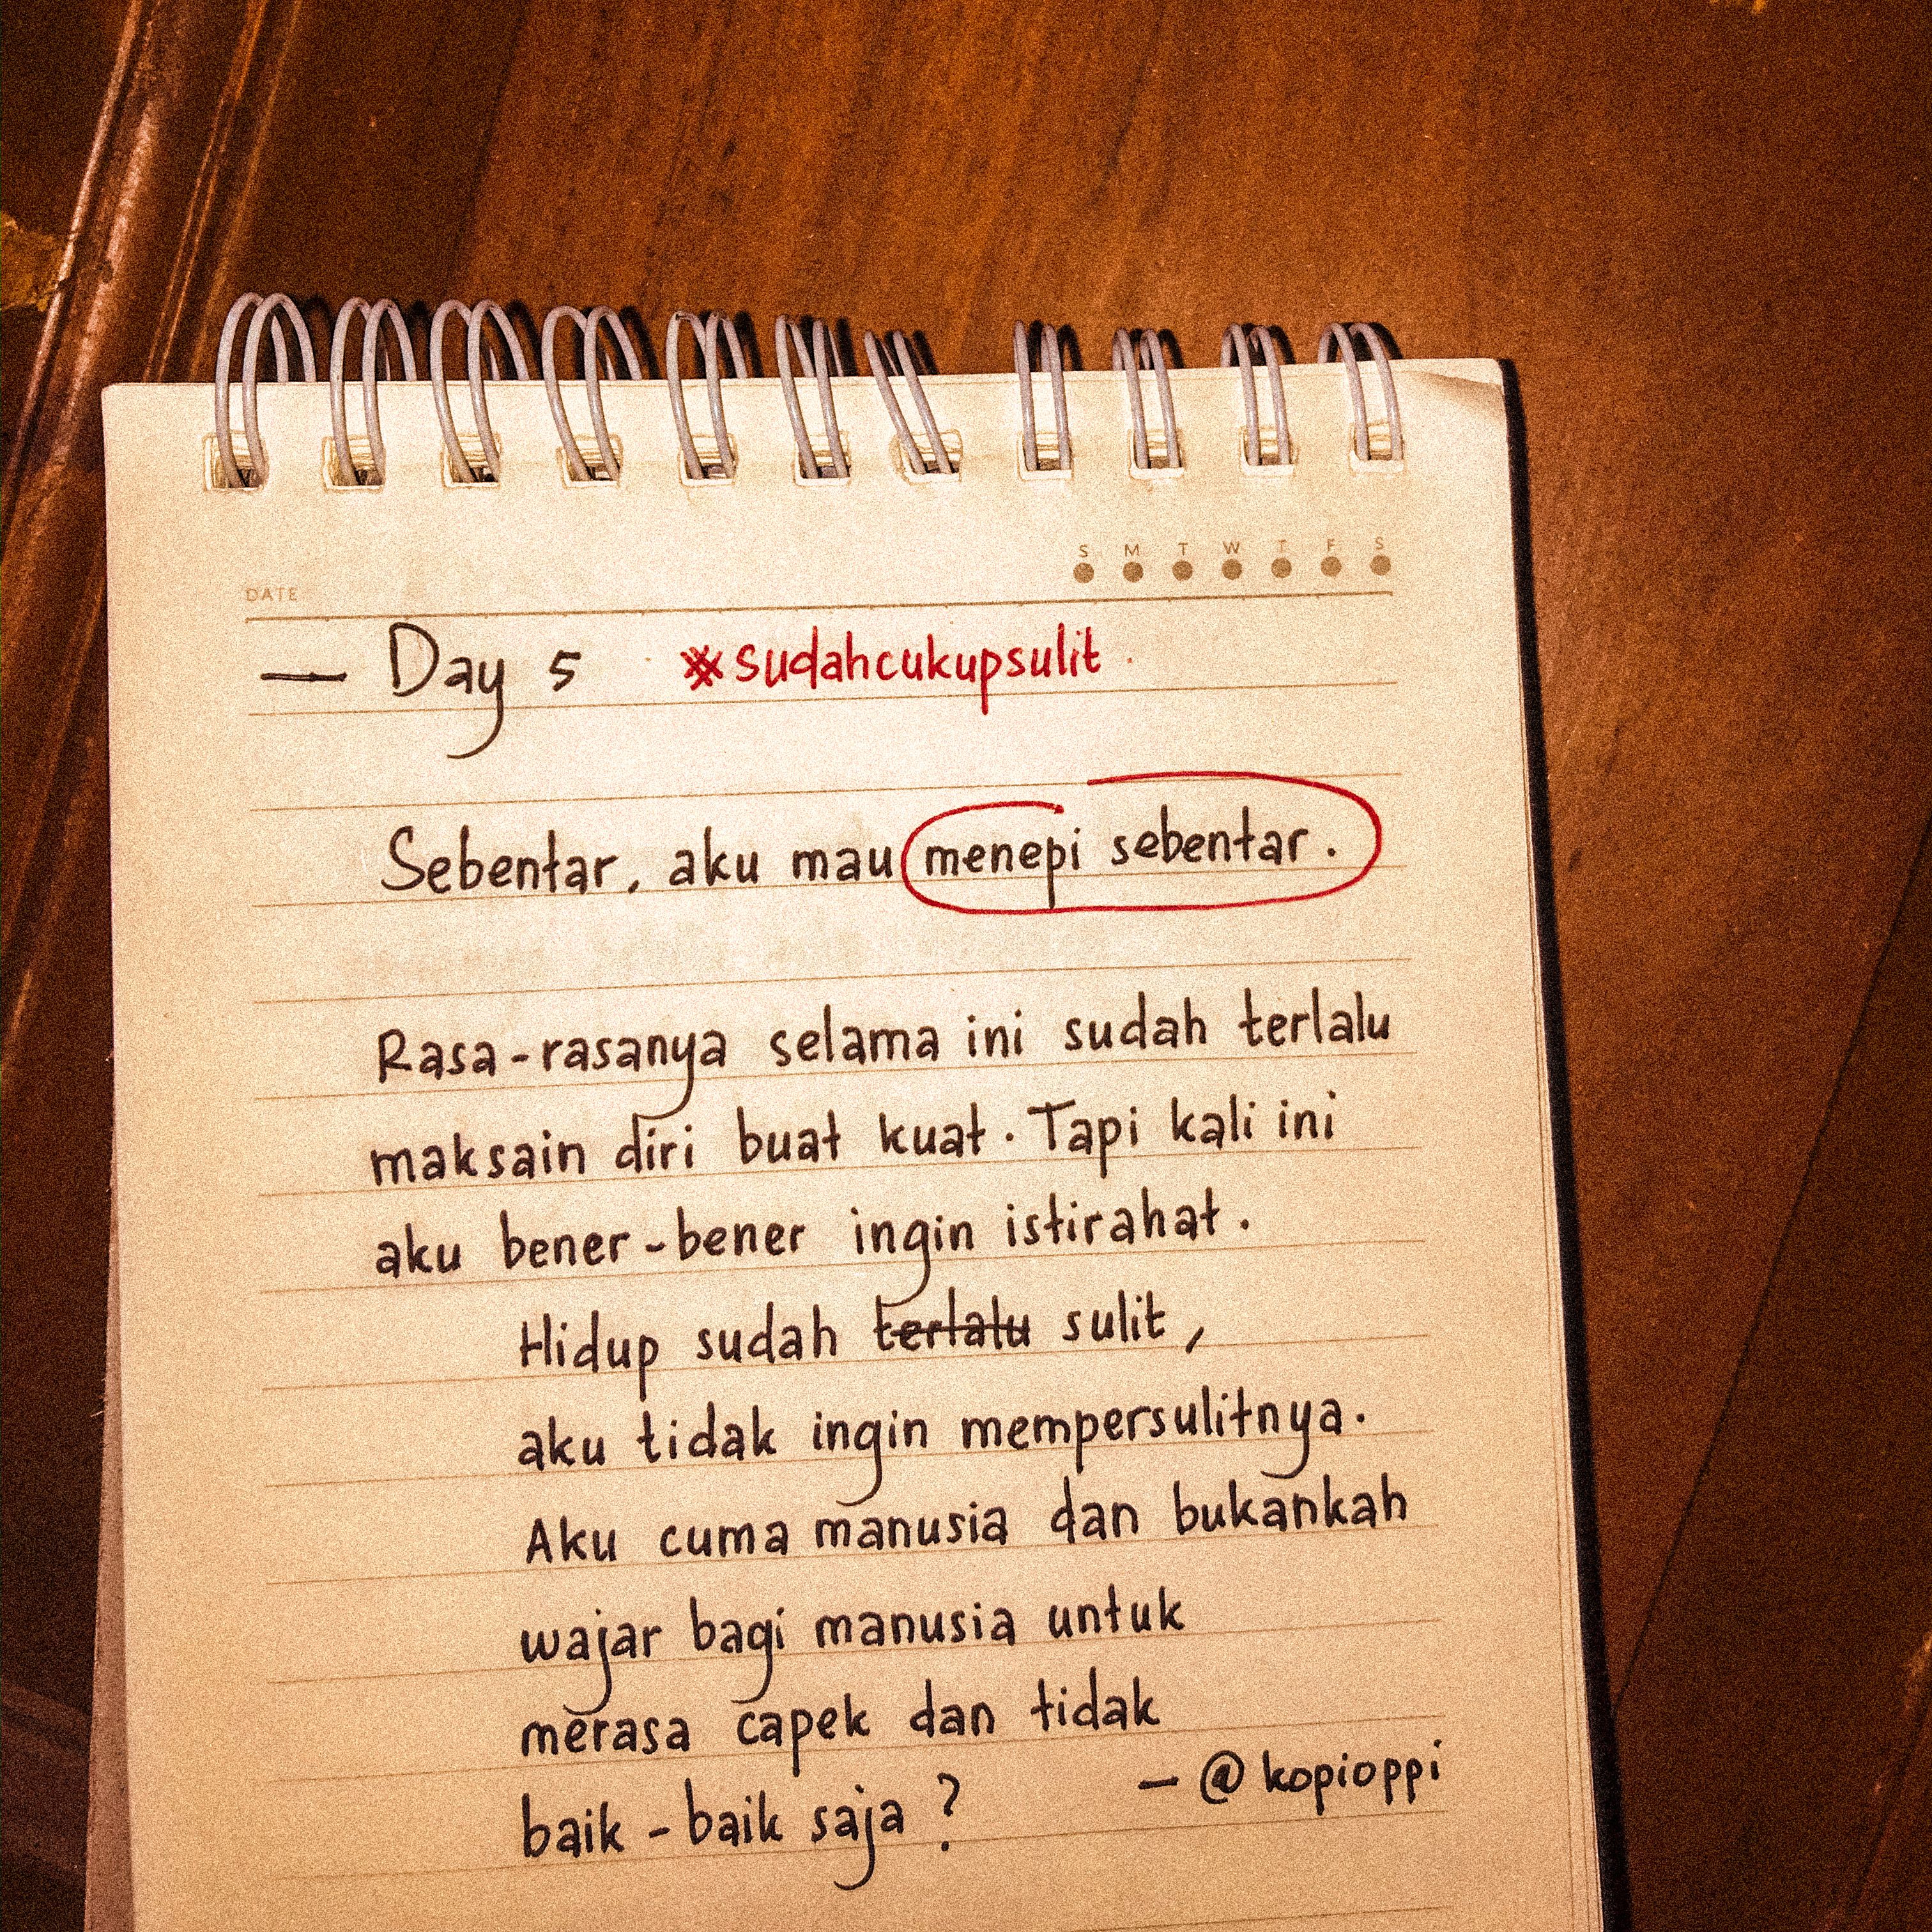 S M T W T F S
DATE
— Day 5 #sudahcukupsulit
Sebentar, aku mau menepi sebentar.
Rasa-rasanya selama ini sudah terlalu
maksain diri buat kuat. Tapi kali ini
aku bener-bener ingin istirahat.
Hidup sudah terlalu sulit,
aku tidak ingin mempersulitnya.
Aku cuma manusia dan bukankah
wajar bagi manusia untuk
merasa capek dan tidak
baik-baik saja?
— @kopioppi